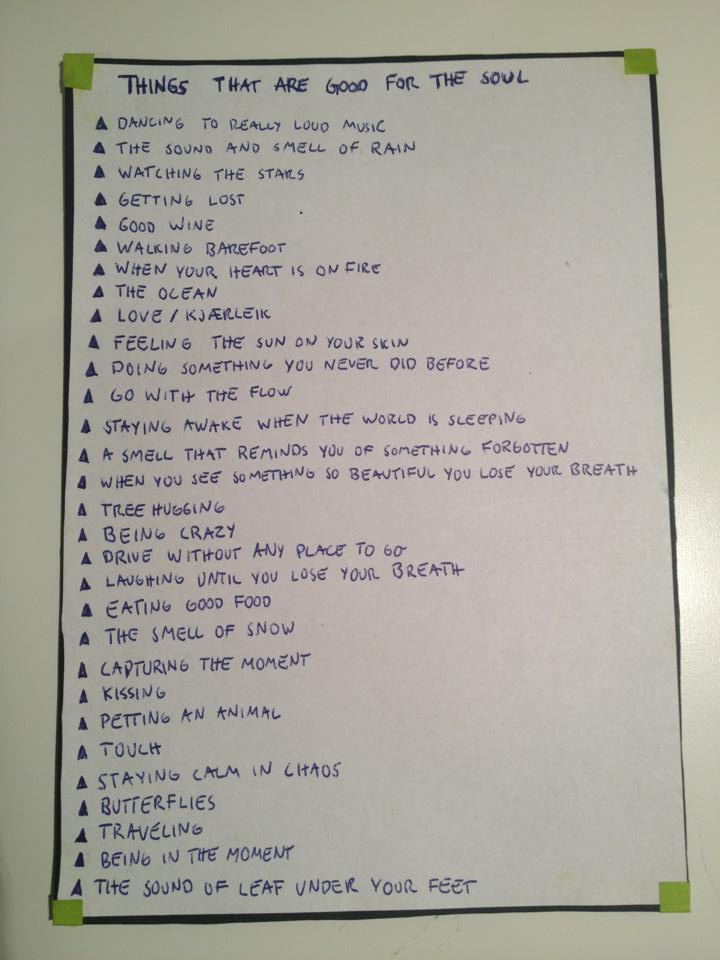 THINGS THAT ARE GOOD FOR THE SOUL
▲ DANCING TO REALLY LOUD MUSIC
▲ THE SOUND AND SMELL OF RAIN
▲ WATCHING THE STARS
▲ GETTING LOST
▲ GOOD WINE
▲ WALKING BAREFOOT
▲ WHEN YOUR HEART IS ON FIRE
▲ THE OCEAN
▲ LOVE / KJÆRLEIK
▲ FEELING THE SUN ON YOUR SKIN
▲ DOING SOMETHING YOU NEVER DID BEFORE
▲ GO WITH THE FLOW
▲ STAYING AWAKE WHEN THE WORLD IS SLEEPING
▲ A SMELL THAT REMINDS YOU OF SOMETHING FORGOTTEN
▲ WHEN YOU SEE SOMETHING SO BEAUTIFUL YOU LOSE YOUR BREATH
▲ TREE HUGGING
▲ BEING CRAZY
▲ DRIVE WITHOUT ANY PLACE TO GO
▲ LAUGHING UNTIL YOU LOSE YOUR BREATH
▲ EATING GOOD FOOD
▲ THE SMELL OF SNOW
▲ CAPTURING THE MOMENT
▲ KISSING
▲ PETTING AN ANIMAL
▲ TOUCH
▲ STAYING CALM IN CHAOS
▲ BUTTERFLIES
▲ TRAVELING
▲ BEING IN THE MOMENT
▲ THE SOUND OF LEAF UNDER YOUR FEET